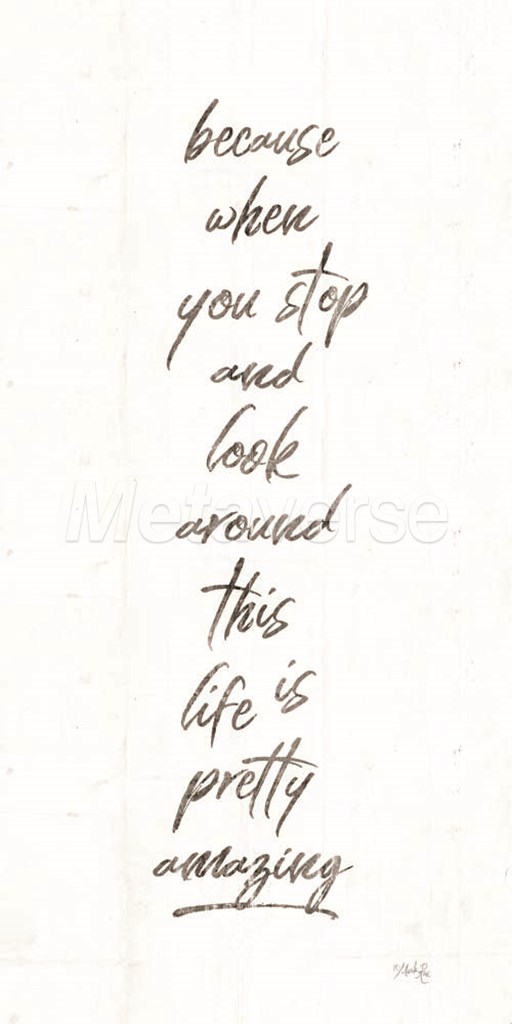 because
when
you stop
and
look
Metaverse
around
this
life is
pretty
amazing